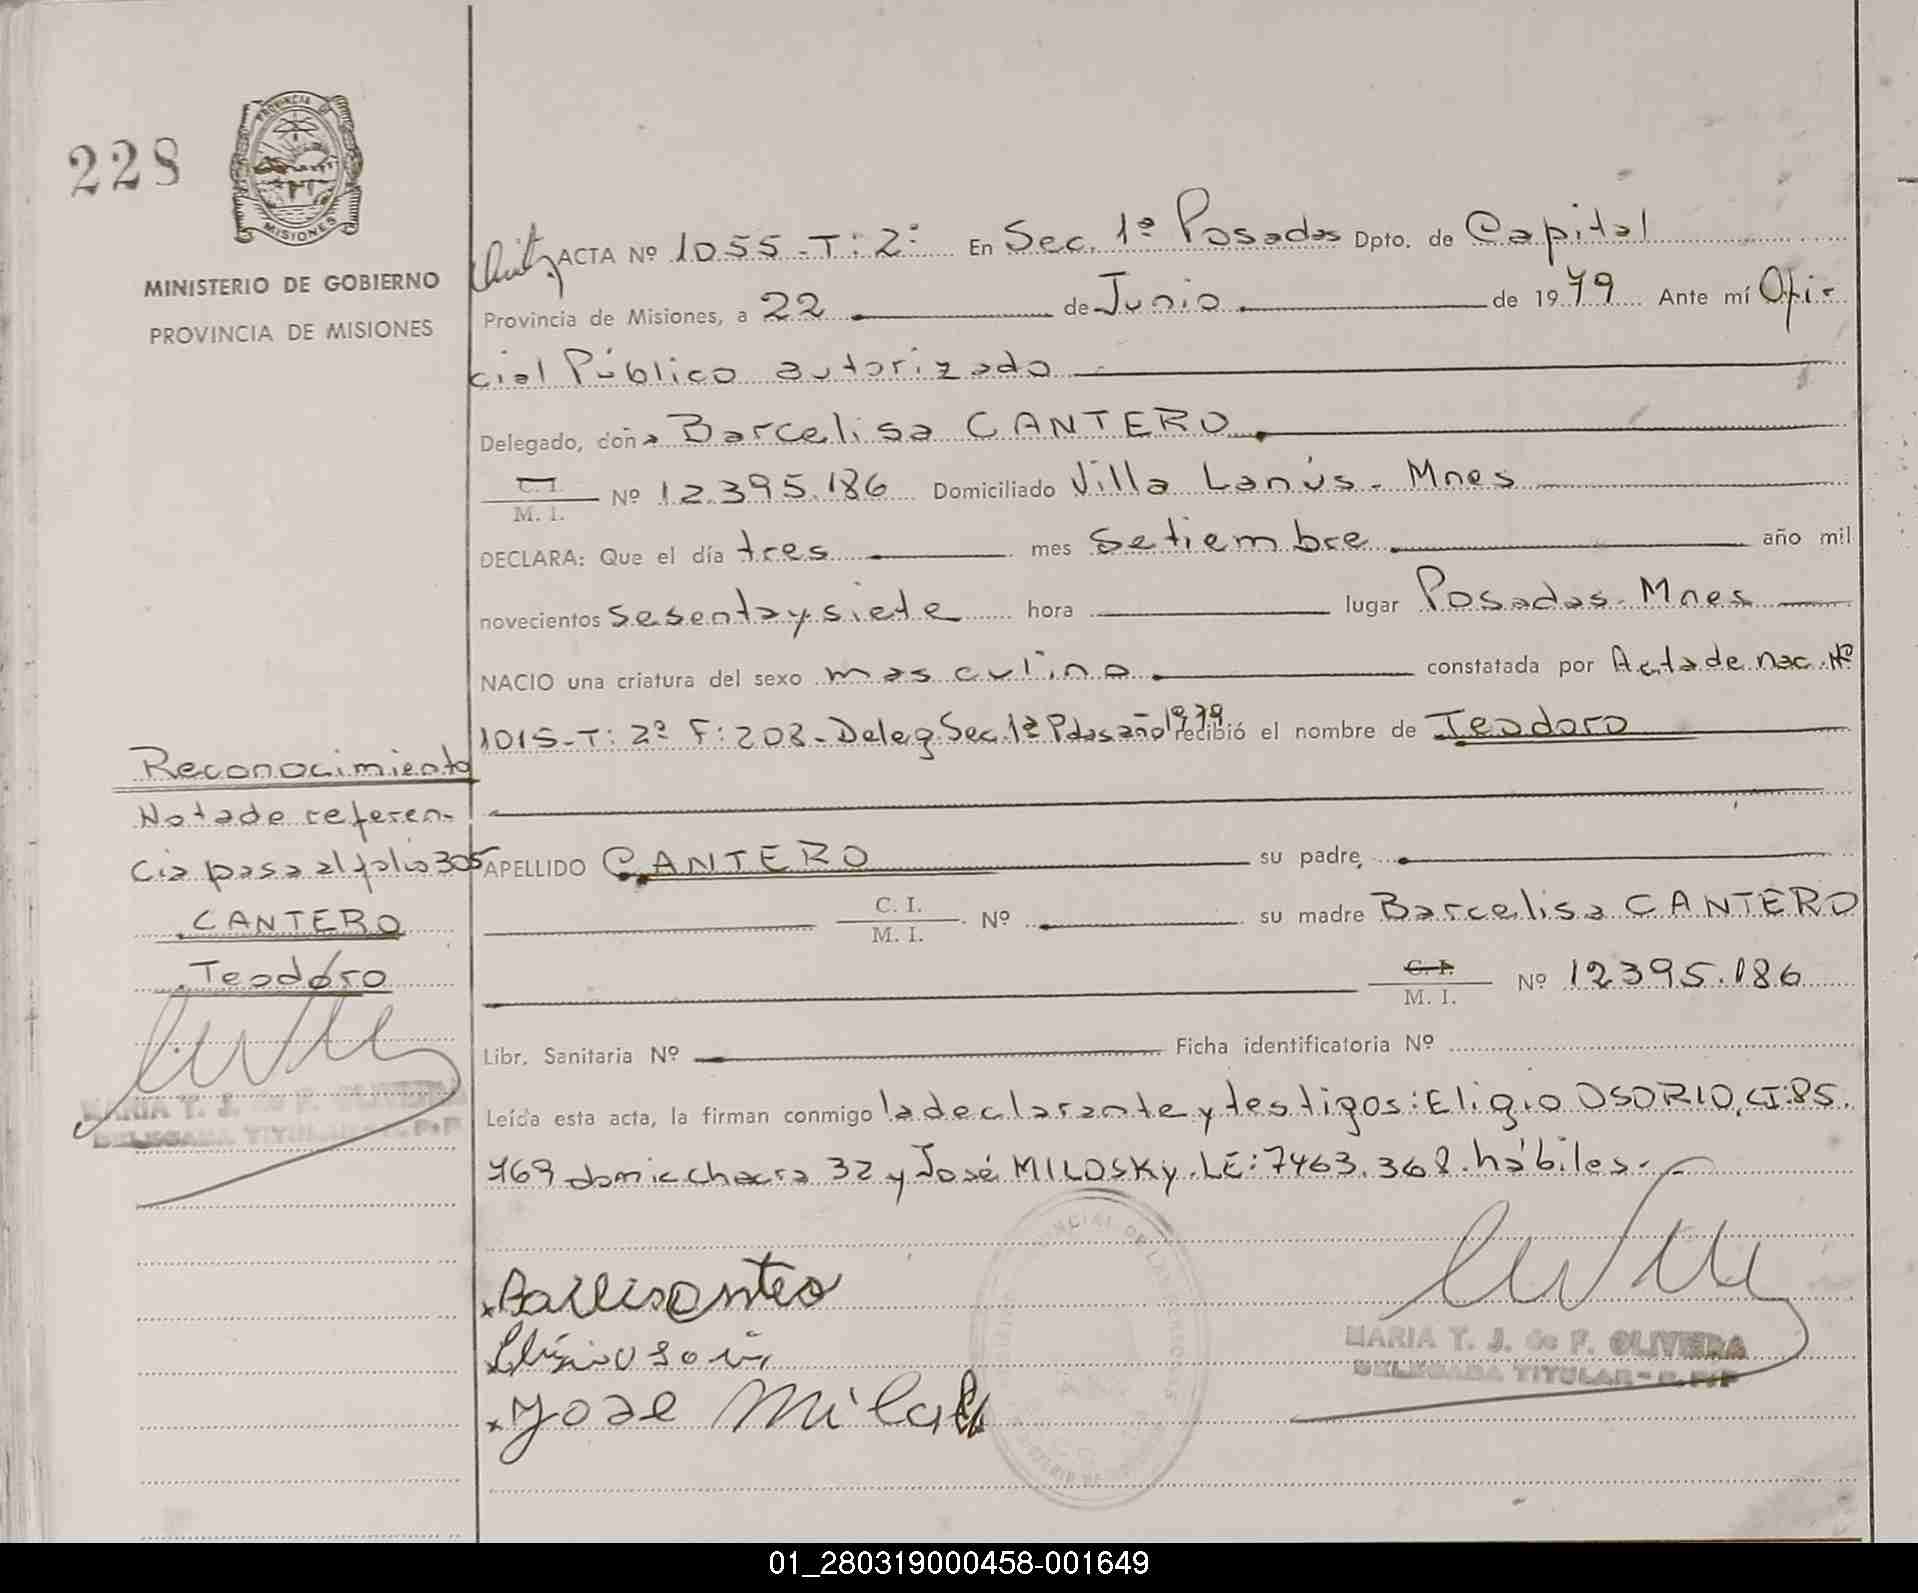 228
PROVINCIA DE
MISIONES
MINISTERIO DE GOBIERNO
PROVINCIA DE MISIONES
ACTA Nº 1055-T:2º En Sec. 1ª Posadas Dpto. de Capital
Provincia de Misiones, a 22 de Junio de 1979 Ante mí Ofi-
cial Público autorizado
Delegado, doña Barcelisa CANTERO
C. I.
M. I. Nº 12.395.186 Domiciliado Villa Lanús - Mnes
DECLARA: Que el día tres mes Setiembre año mil
novecientos sesenta y siete hora lugar Posadas - Mnes
NACIO una criatura del sexo masculino constatada por Acta de nac. Nº
1015-T:2º F:208- Deleg. Sec. 1ª Pdas año 1979 recibió el nombre de Teodoro
APELLIDO CANTERO su padre,
C. I.
M. I. Nº su madre Barcelisa CANTERO
C. I.
M. I. Nº 12395.186
Libr. Sanitaria Nº Ficha identificatoria Nº
Leída esta acta, la firman conmigo la declarante y testigos: Eligio OSORIO, CI: 85.
769 domic chacra 32 y José MILOSKy. LE: 7463.368. hábiles.-
Reconocimiento
Nota de referen-
cia pasa al folio 305
CANTERO
Teodoro
MARIA T. J. de F. OLIVEIRA
DELEGADA TITULAR - R.P.P
MARIA T. J. de F. OLIVEIRA
DELEGADA TITULAR - R.P.P
01_280319000458-001649